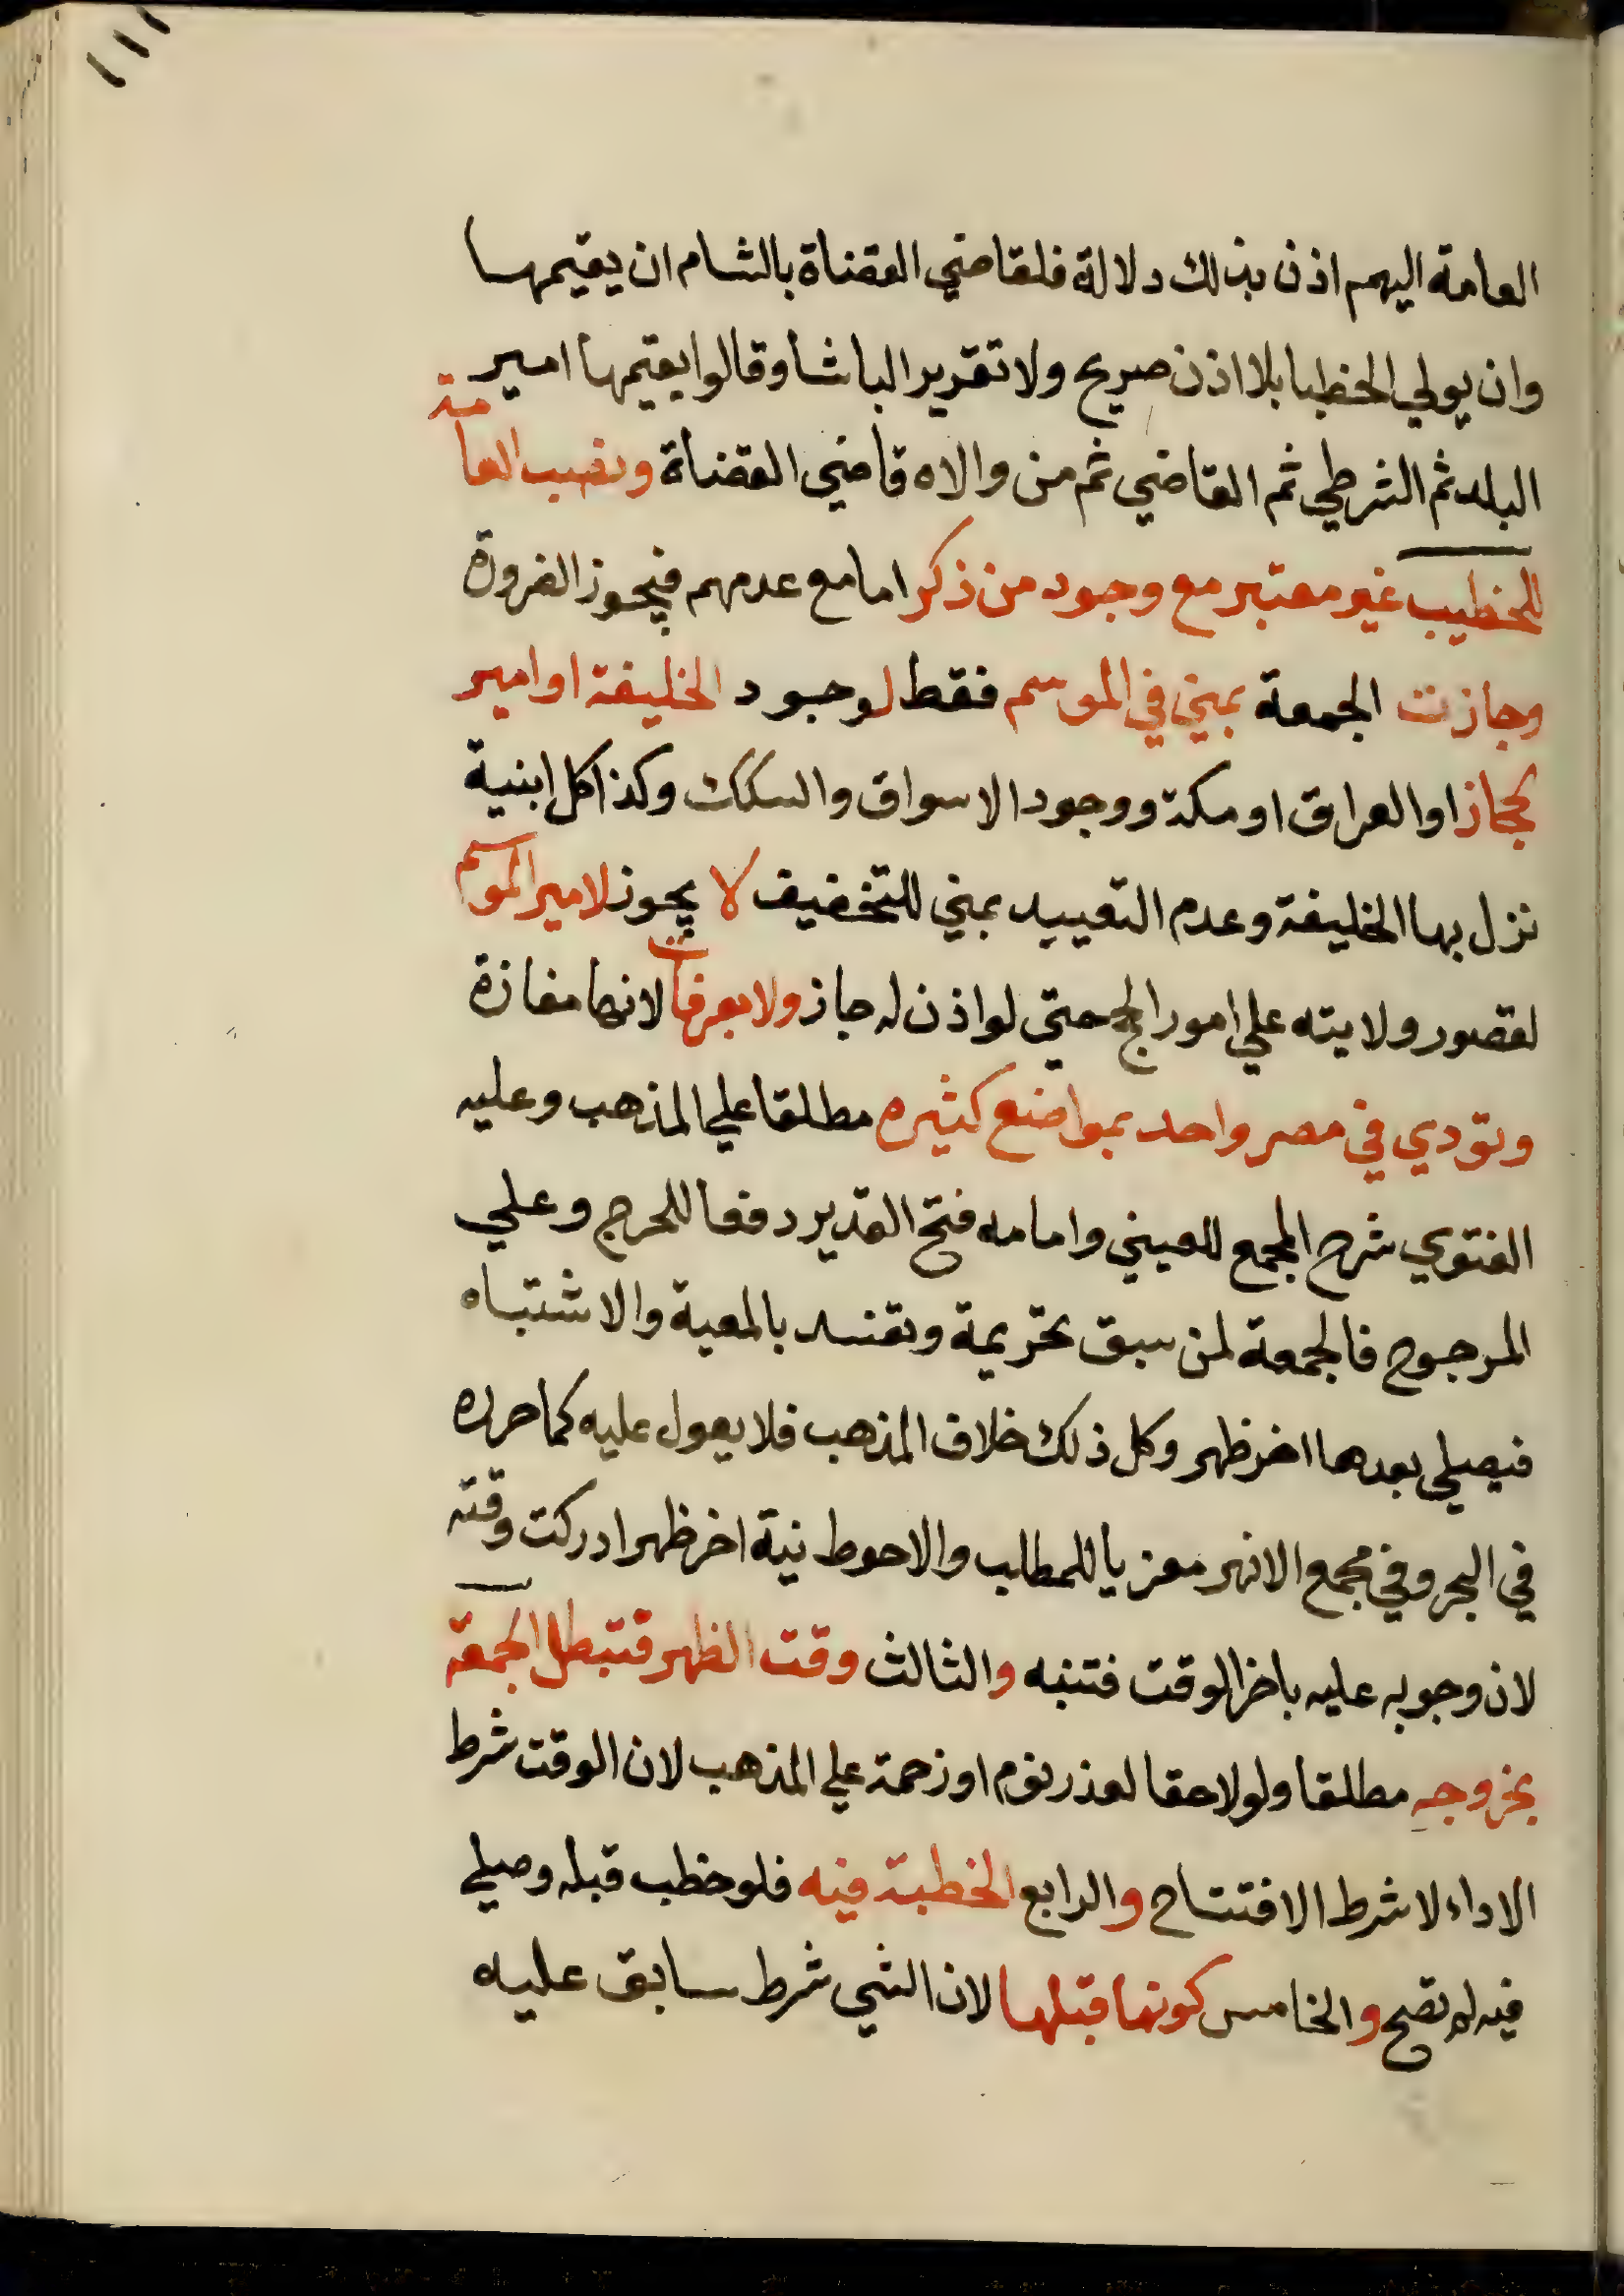 ١١١
العامة اليهم اذن بذلك دلالة فلقاضي القضاة بالشام ان يقيمها
وان يولي الخطبا بلا اذن صريح ولا تقرير الباشا وقالوا يقيمها امير
البلد ثم الشرطي ثم القاضي ثم من والاه قاضي القضاة ونصب العامة
للخطيب غير معتبر مع وجود من ذكر اما مع عدمهم فيجوز الضرورة
وجازت الجمعة بمني في الموسم فقط لوجود الخليفة او امير
لحجاز او العراق او مكة ووجود الاسواق والسكك وكذا كل ابنية
نزل بها الخليفة وعدم التقييد بمني للتخفيف لا يجوز لامير الموسم
لقصور ولايته علي امور الحج حتي لو اذن له جاز ولا بعرفات لانها مفازة
وتودي في مصر واحد بمواضع كثيره مطلقا علي المذهب وعليه
الفتوي شرح المجمع للعيني وامامه فتح القدير دفعا للحرج وعلي
المرجوح فالجمعة لمن سبق تحريمة وتفسد بالمعية والاشتباه
فيصلي بعدها اخر ظهر وكل ذلك خلاف المذهب فلا يعول عليه كما حرره
في البحر وفي مجمع الانهر معزيا للمطلب والاحوط نية اخر ظهر ادركت وقته
لان وجوبه عليه باخر الوقت فتنبه والثالث وقت الظهر فتبطل الجمعة
بخروجه مطلقا ولو لاحقا لعذر نوم او زحمة علي المذهب لان الوقت شرط
الاداء لا شرط الافتتاح والرابع الخطبة فيه فلو خطب قبله وصلي
فيه لم تصح والخامس كونها قبلها لان الشي شرط سابق عليه